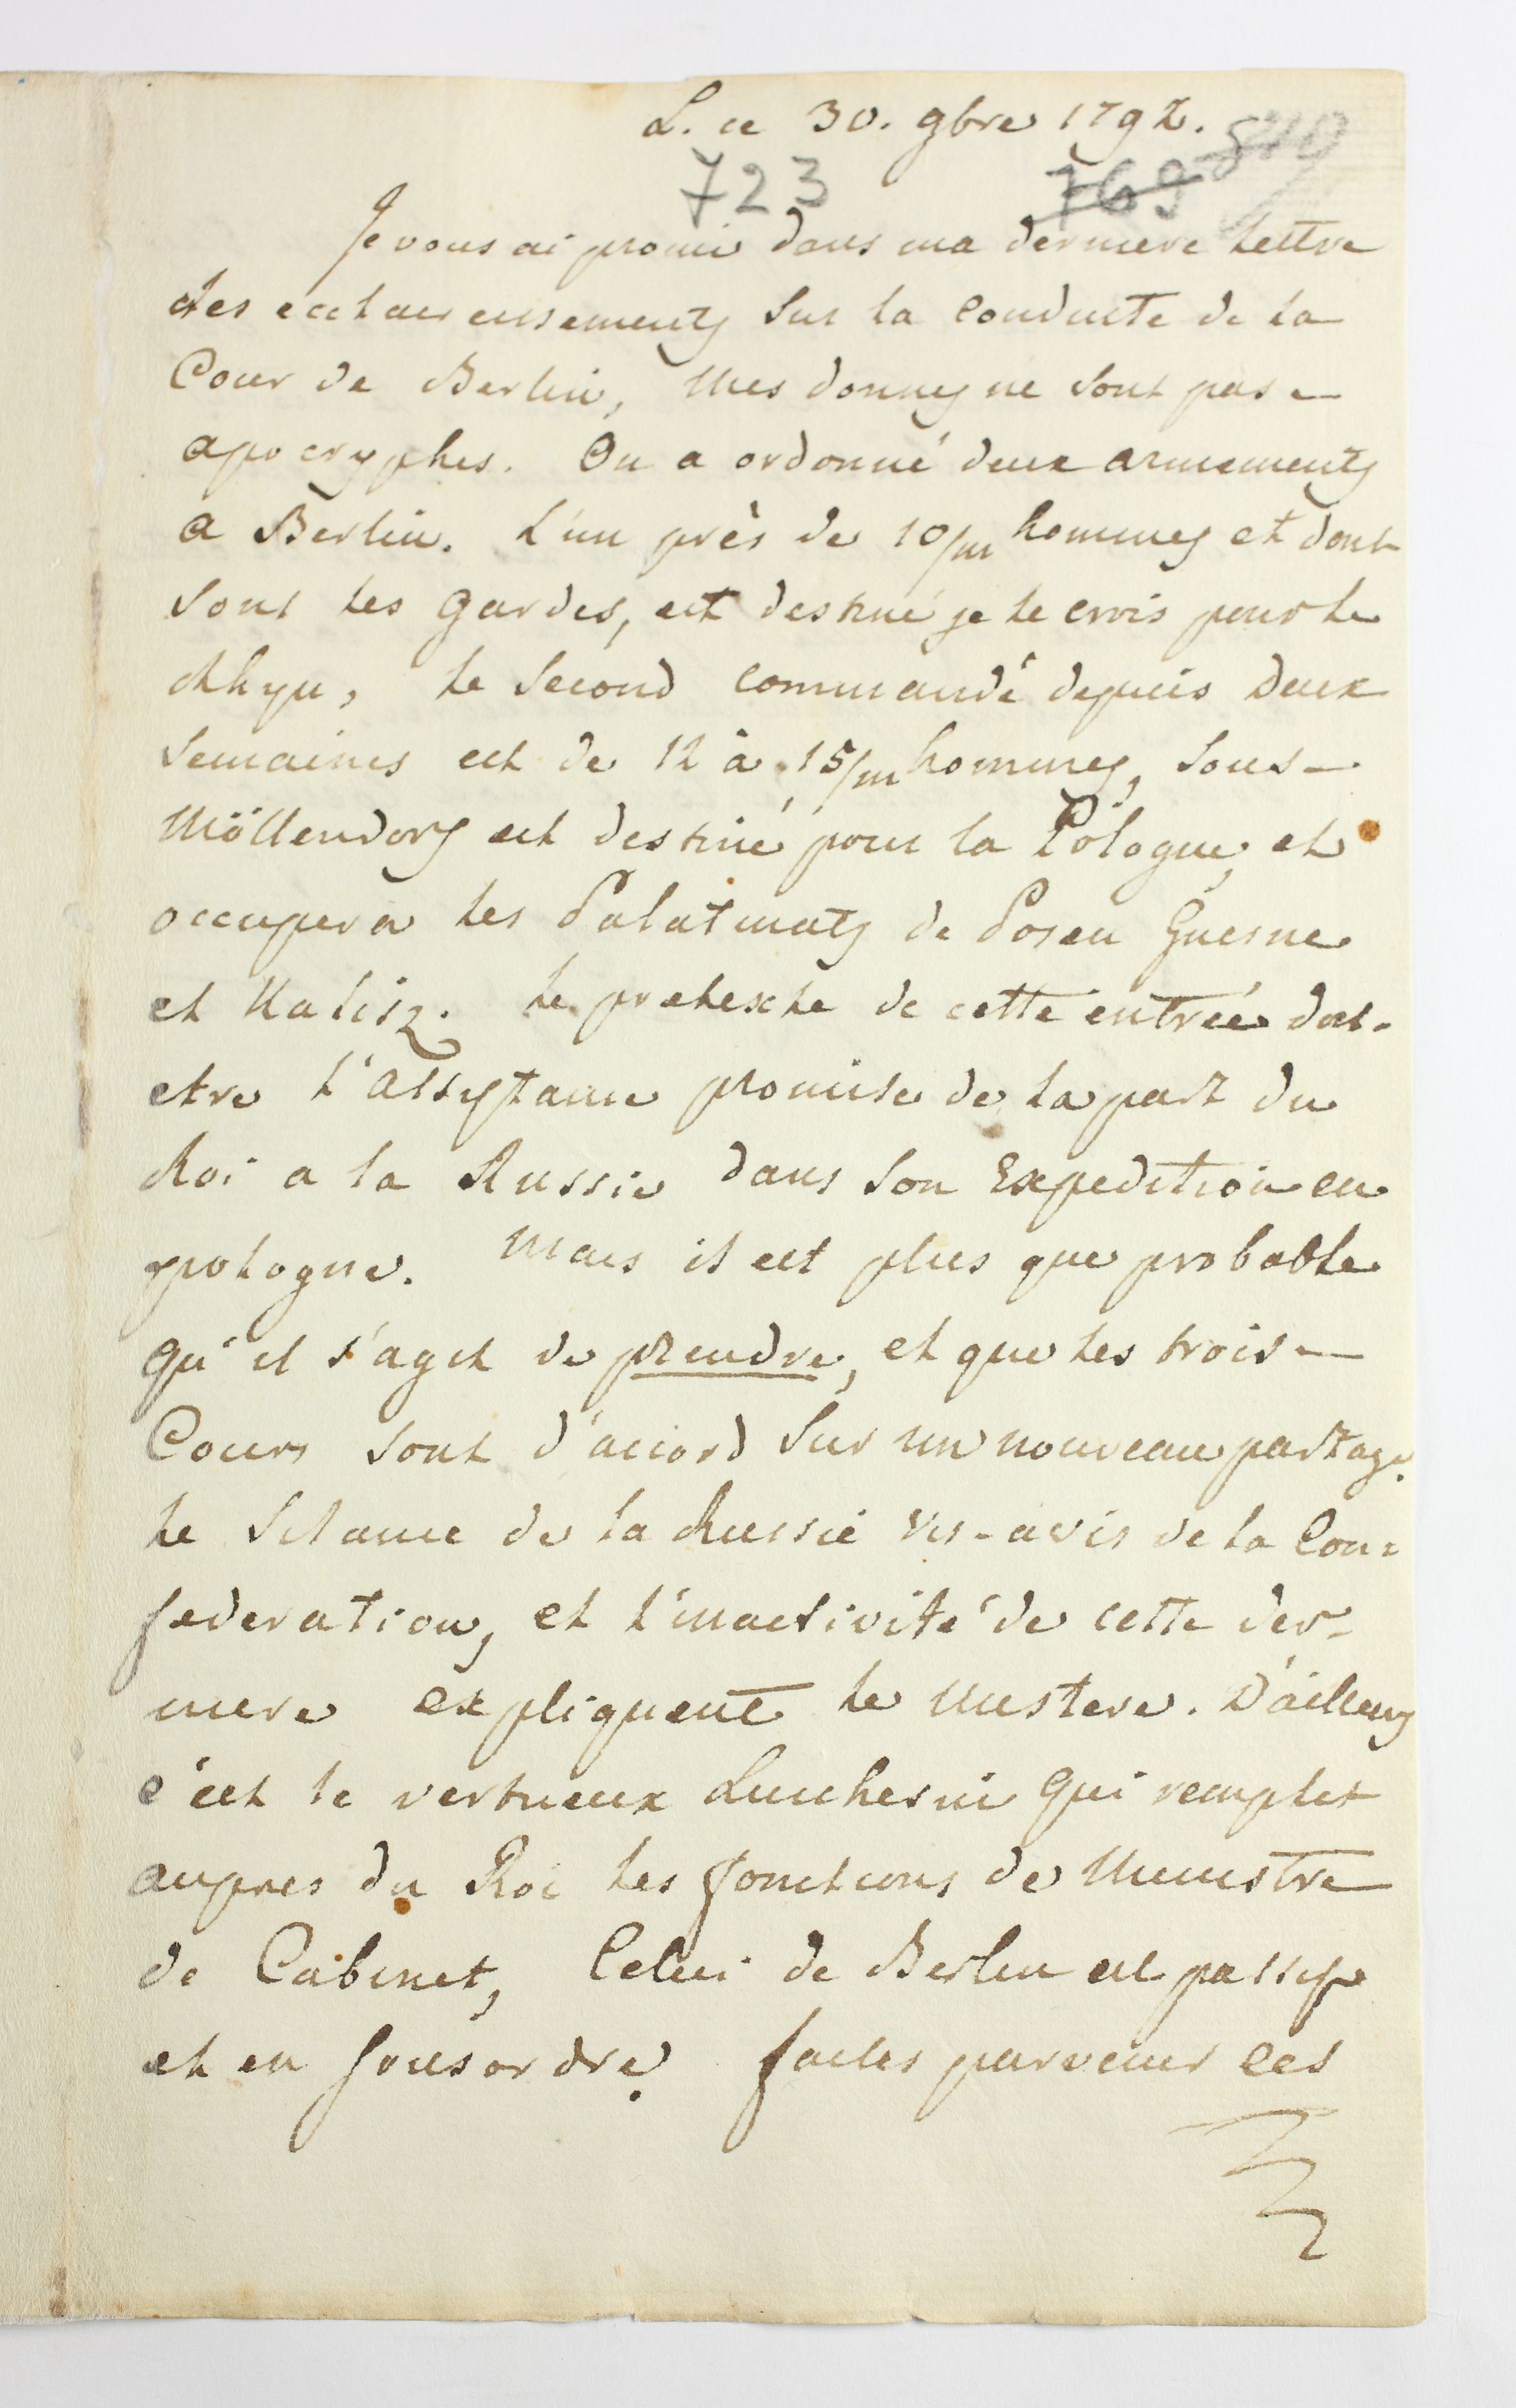 L. ce 30. 9bre 1792.
723 769
Je vous ai promis dans ma derniere lettre
des eclaircissements sur la conduite de la
Cour de Berlin, Mes donnes ne sont pas
apocryphes. On a ordonné deux armements
a Berlin. L'un près de 10/m hommes et dont
sont les gardes, est destiné je le crois pour le
Rhyn, le second commandé depuis deux
semaines est de 12 à 15/m hommes, sous
Möllendorf est destiné pour la Pologne, et
occupera les Palatinats de Posen Gnesne
et Kalisz. Le pretexte de cette entrée doit
etre l'assystance promise de la part du
Roi a la Russie dans son Expedition en
pologne. Mais il est plus que probable
qu'il s'agit de prendre, et que les trois
Cours sont d'accord sur un nouveau partage.
Le silence de la Russie vis-a-vis de la Con=
federation, et l'inactivité de cette der-
niere expliquent le mistere. D'ailleurs
c'est le vertueux Lucchesini qui remplit
aupres du Roi les fonctions de Ministre
de Cabinet, Celui de Berlin est passif
et en sousordre. faites parvenir ces